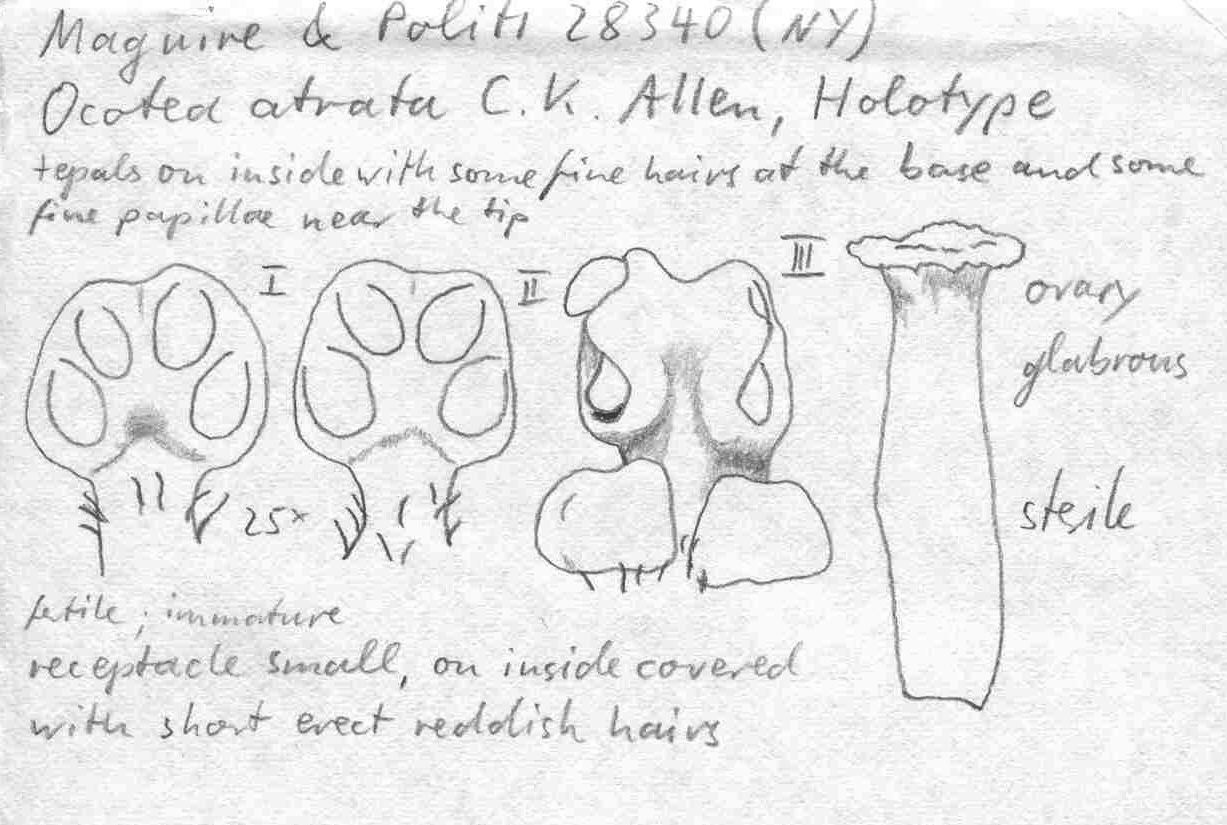 Maguire & Politi 28340 (NY)
Ocotea atrata C.K. Allen, Holotype
tepals on inside with some fine hairs at the base and some
fine papillae near the tip
I
II
III
ovary
glabrous
25x
sterile
fertile; immature
receptacle small, on inside covered
with short erect reddish hairs